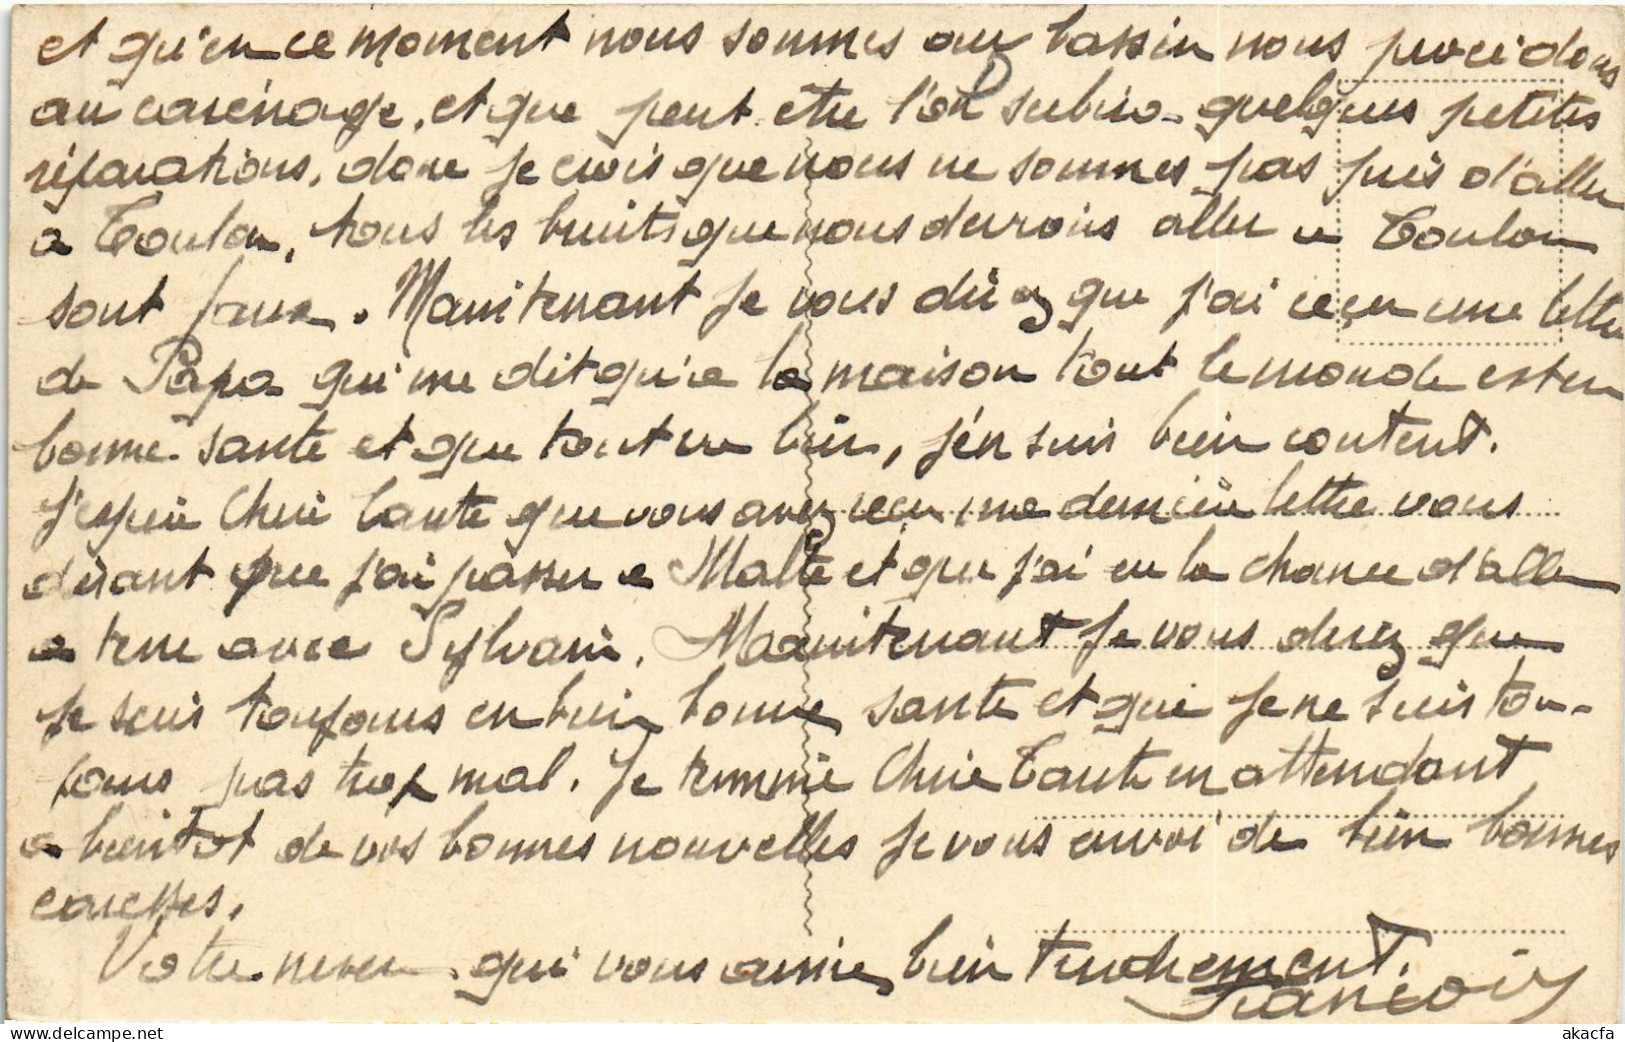 et qu'en ce moment nous sommes au bassin nous procidons
au carénage, et que peut être l'on subira quelques petites
réparations, donc je crois que nous ne sommes pas près d'aller
a Toulon, tous les bruits que nous devrions aller a Toulon
sont faux. Maintenant je vous direz que j'ai reçu une lettre
de Papa qui me dit qu'a la maison tout le monde est en
bonne sante et que tout va bien, j'en suis bien content.
J'espère Chère Tante que vous avez reçu ma dernière lettre vous
disant que j'ai passer a Malte et que j'ai eu la chance d'aller
a terre avec Sylvain. Maintenant je vous direz que
je suis toujours en bien bonne sante et que je ne suis tou-
jours pas trop mal. Je termine Chère Tante en attendant
a bientot de vos bonnes nouvelles je vous envoi de bien bonnes
caresses.
Votre neveu qui vous aime bien tendrement.
François
akacfa